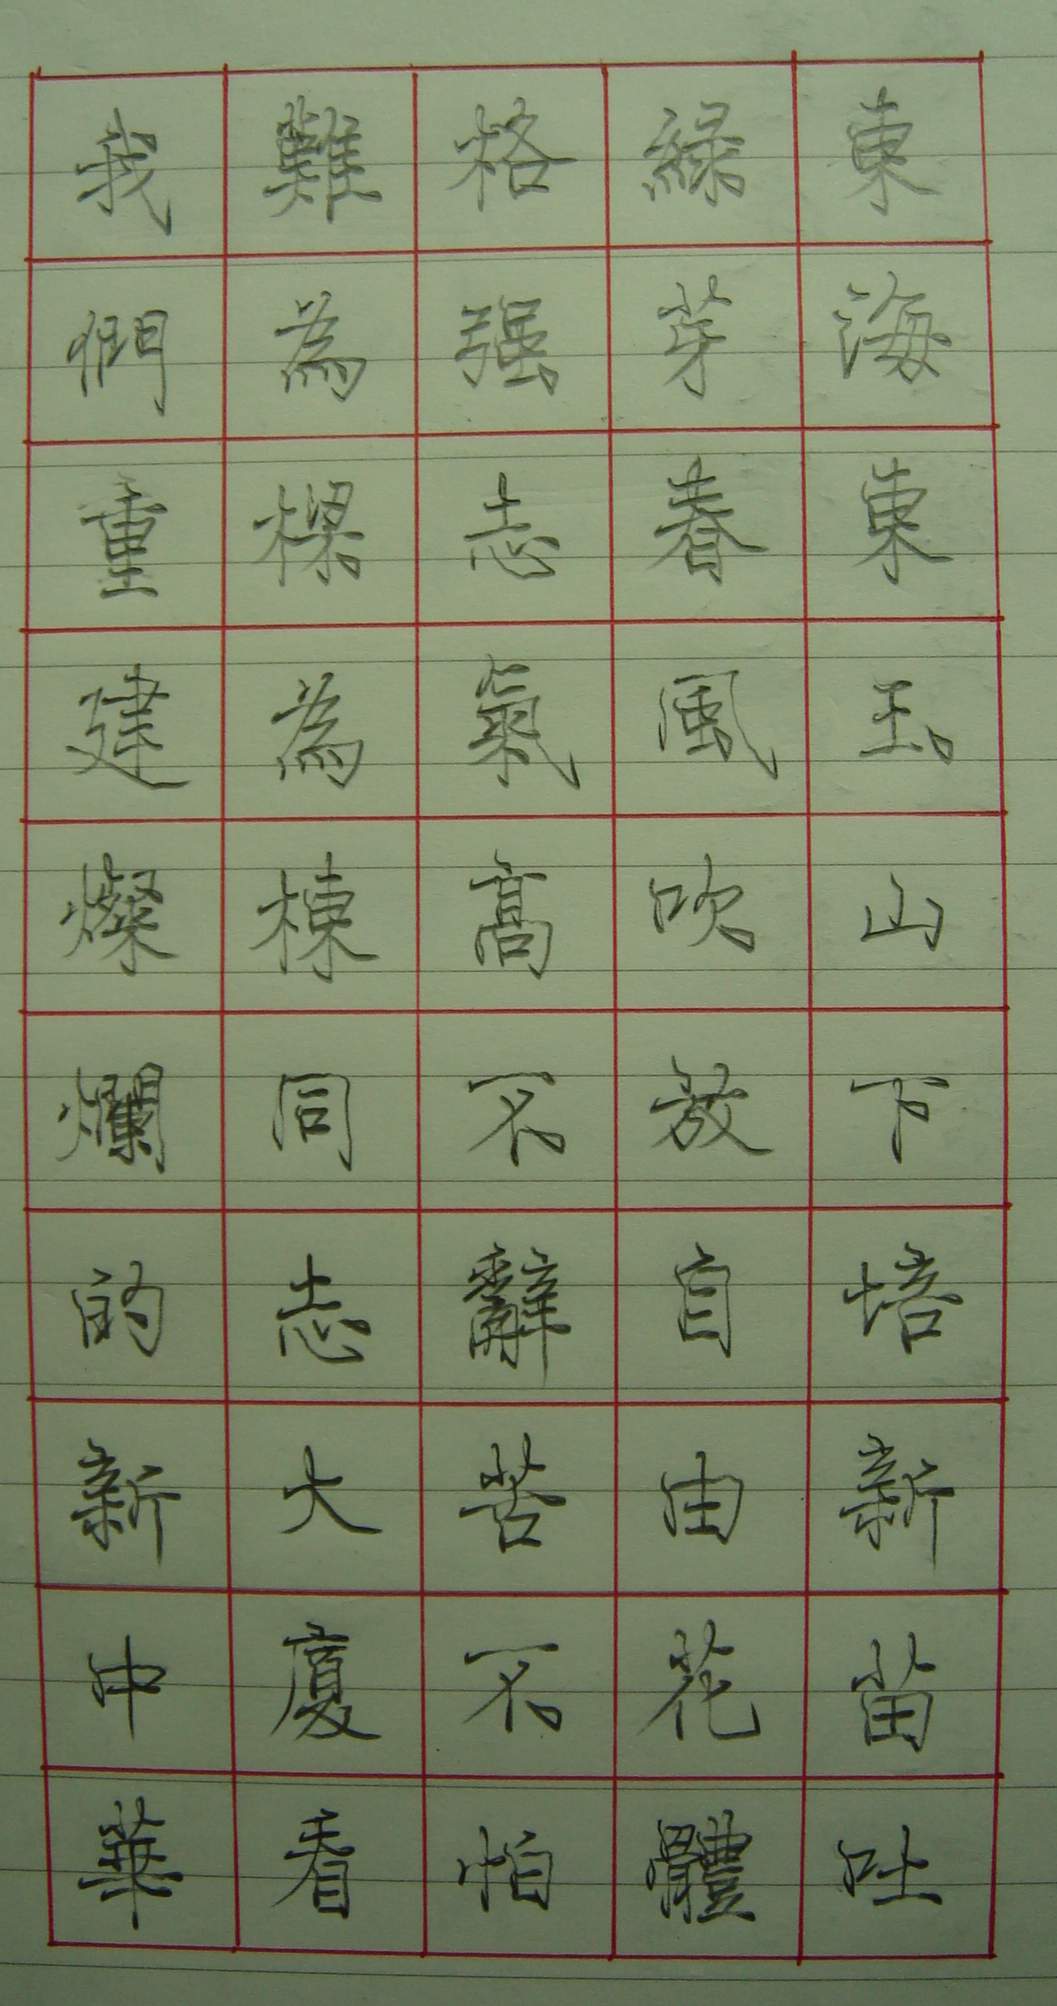 東海東玉山下培新苗吐
綠芽春風吹放自由花體
格强志氣高不辭苦不怕
難為樑為棟同志大廈看
我們重建燦爛的新中華